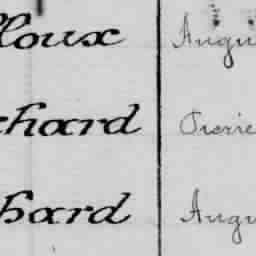 loux Augu
chard Pierre
hard Augu